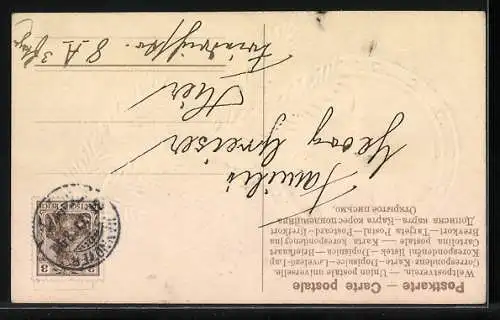 Postkarte — Carte postale
Weltpostverein. — Union postale universelle.
Correspondenz-Karte — Dopisnice — Levelező-Lap
Korespondenční lístek — Dopisnica — Briefkaart
Cartolina postale — Karta korespondencyjna
Brevkort — Tarjeta Postal — Postcard — Brefkort
Дописна карта — Карта кореспонденцийна
Открытое письмо.
Familie
Georg Greiser
Hier
8 A
3
3 3